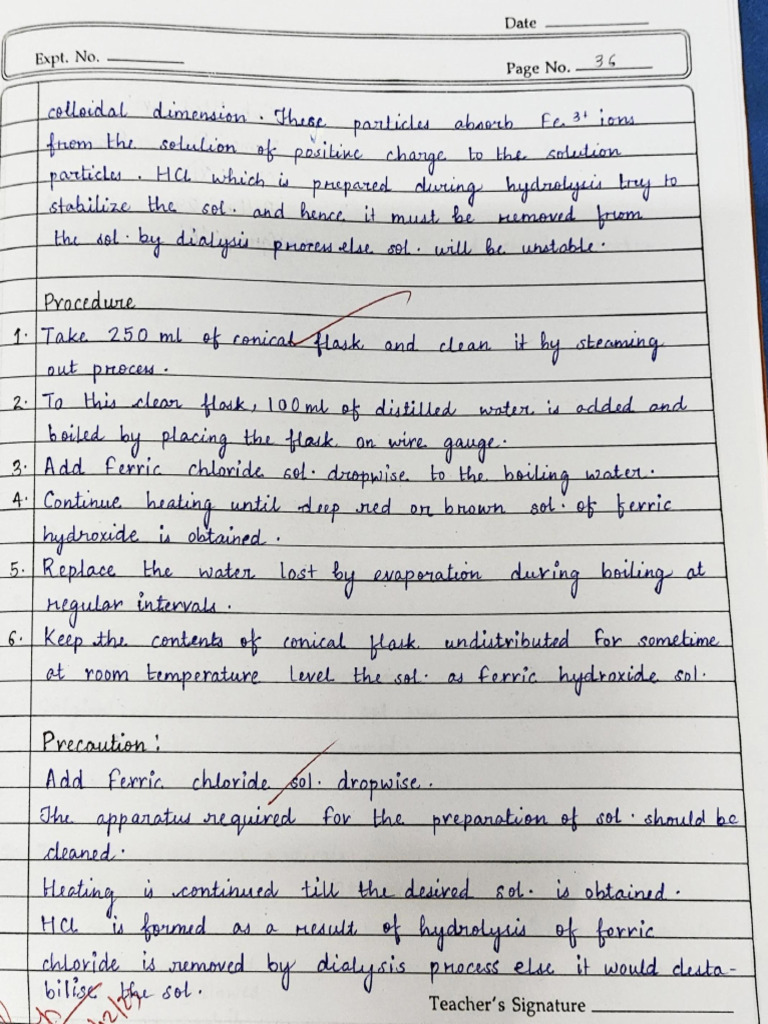 Date
Expt. No.
Page No. 36
colloidal dimension. These particles absorb Fe³⁺ ions
from the solution of positive charge to the solution
particles. HCl which is prepared during hydrolysis try to
stabilize the sol. and hence it must be removed from
the sol. by dialysis process else sol. will be unstable.
Procedure
1. Take 250 ml of conical flask and clean it by steaming
out process.
2. To this clear flask, 100 ml of distilled water is added and
boiled by placing the flask on wire gauge.
3. Add ferric chloride sol. dropwise to the boiling water.
4. Continue heating until deep red or brown sol. of ferric
hydroxide is obtained.
5. Replace the water lost by evaporation during boiling at
regular intervals.
6. Keep the contents of conical flask undistributed for sometime
at room temperature level the sol. as ferric hydroxide sol.
Precaution:
Add ferric chloride sol. dropwise.
The apparatus required for the preparation of sol. should be
cleaned.
Heating is continued till the desired sol. is obtained.
HCl is formed as a result of hydrolysis of ferric
chloride is removed by dialysis process else it would desta-
bilise the sol.
Teacher's Signature